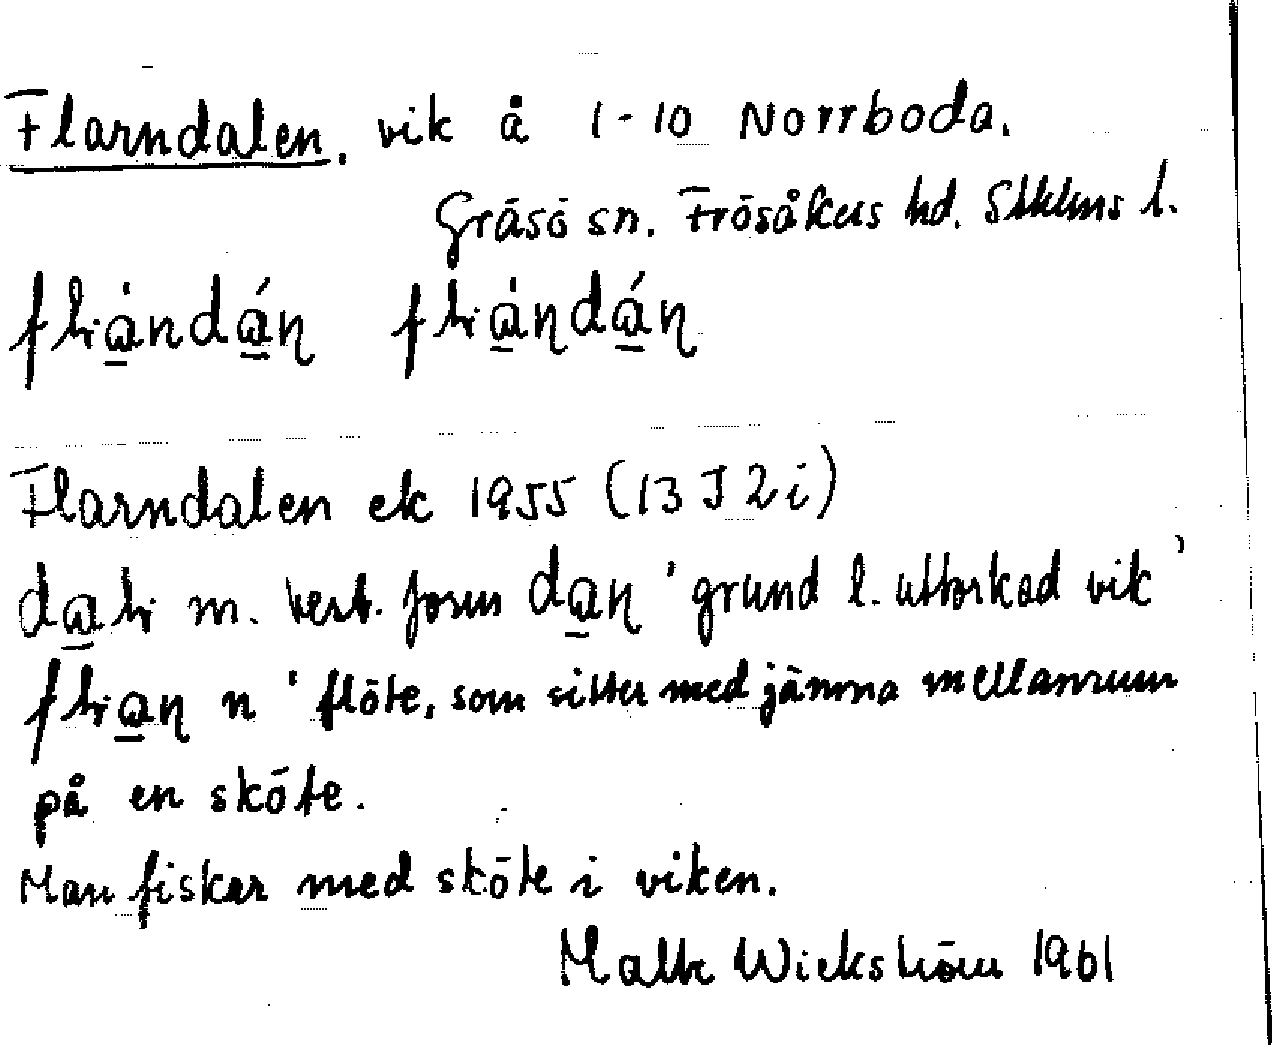 Flarndalen, vik å 1-10 Norrboda.
Gräsö sn. Frösåkers hd. Sthlms l.
Flarndalen ek 1955 (13 J 2 i)
m. best. form dan 'grund l. uttorkad vik'
n 'flöte, som sitter med jämna mellanrum
på en sköte.
Man fiskar med sköte i viken.
Wickström 1961